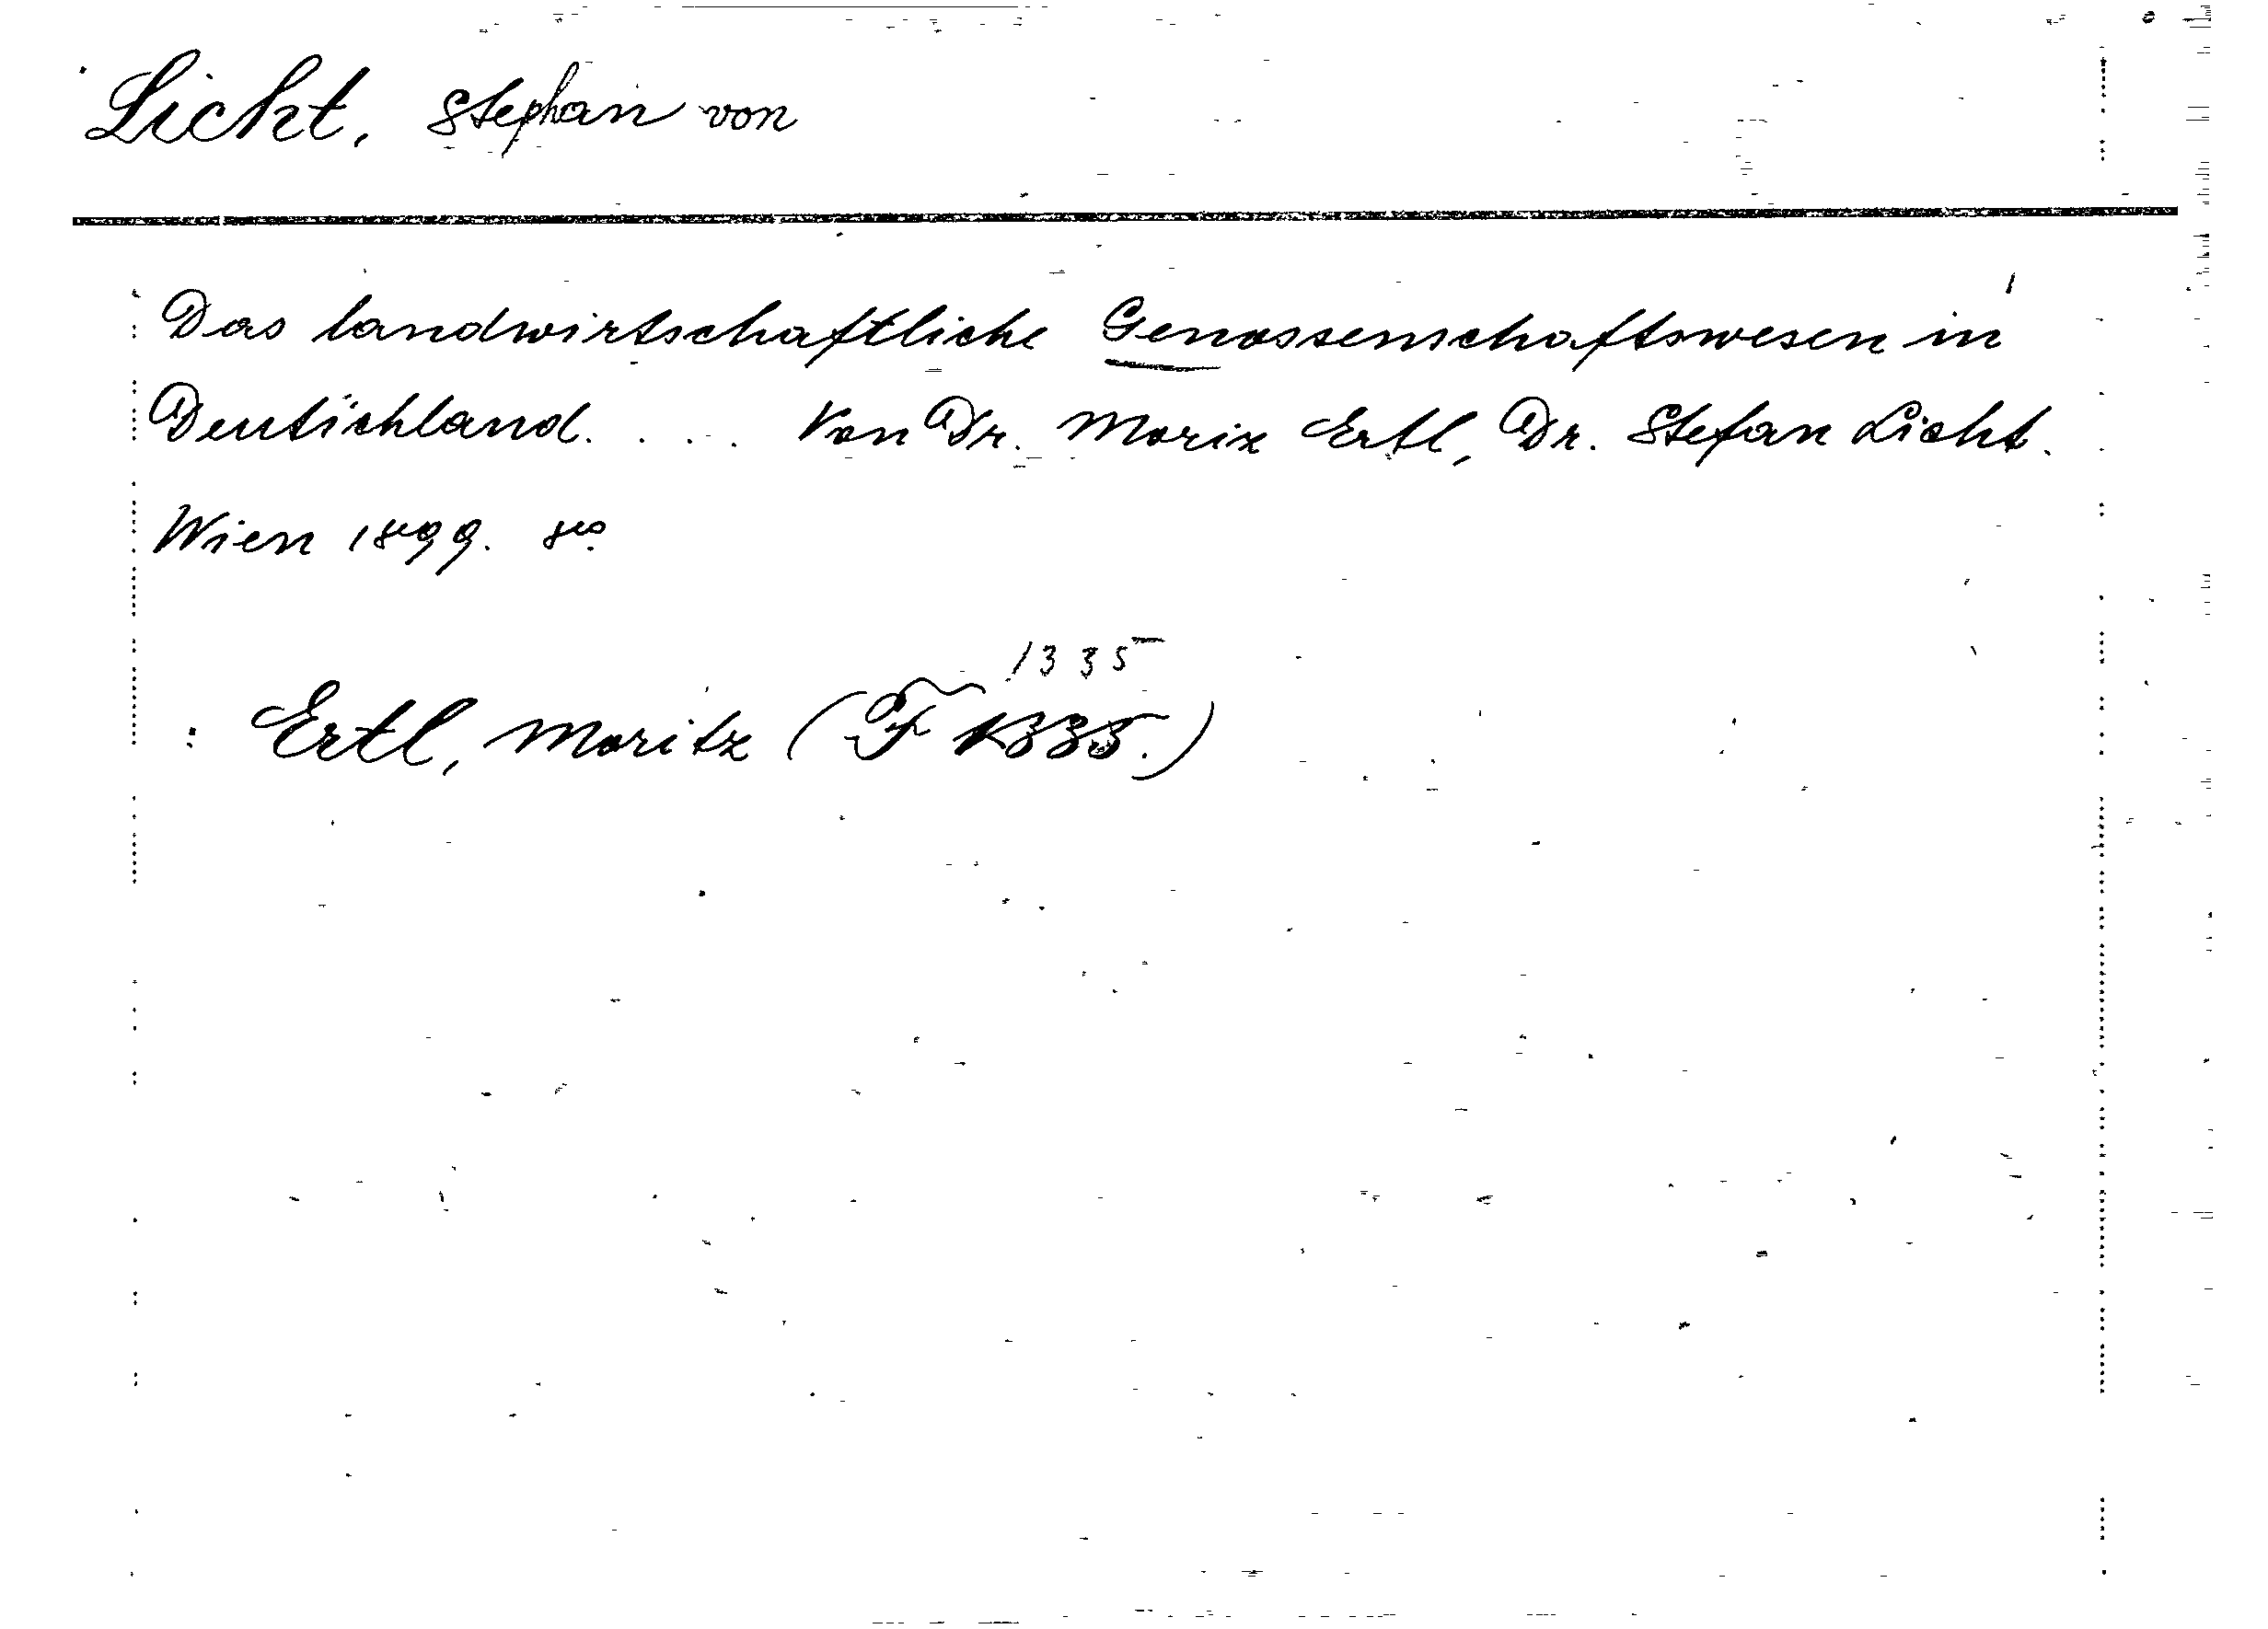 Licht, Stephan von
Das landwirtschaftliche Genossenschaftswesen in
Deutschland. . . . Von Dr. Moriz Ertl, Dr. Stefan Licht.
Wien 1899. 8vo.
1335
Ertl, Moritz (F 1335.)